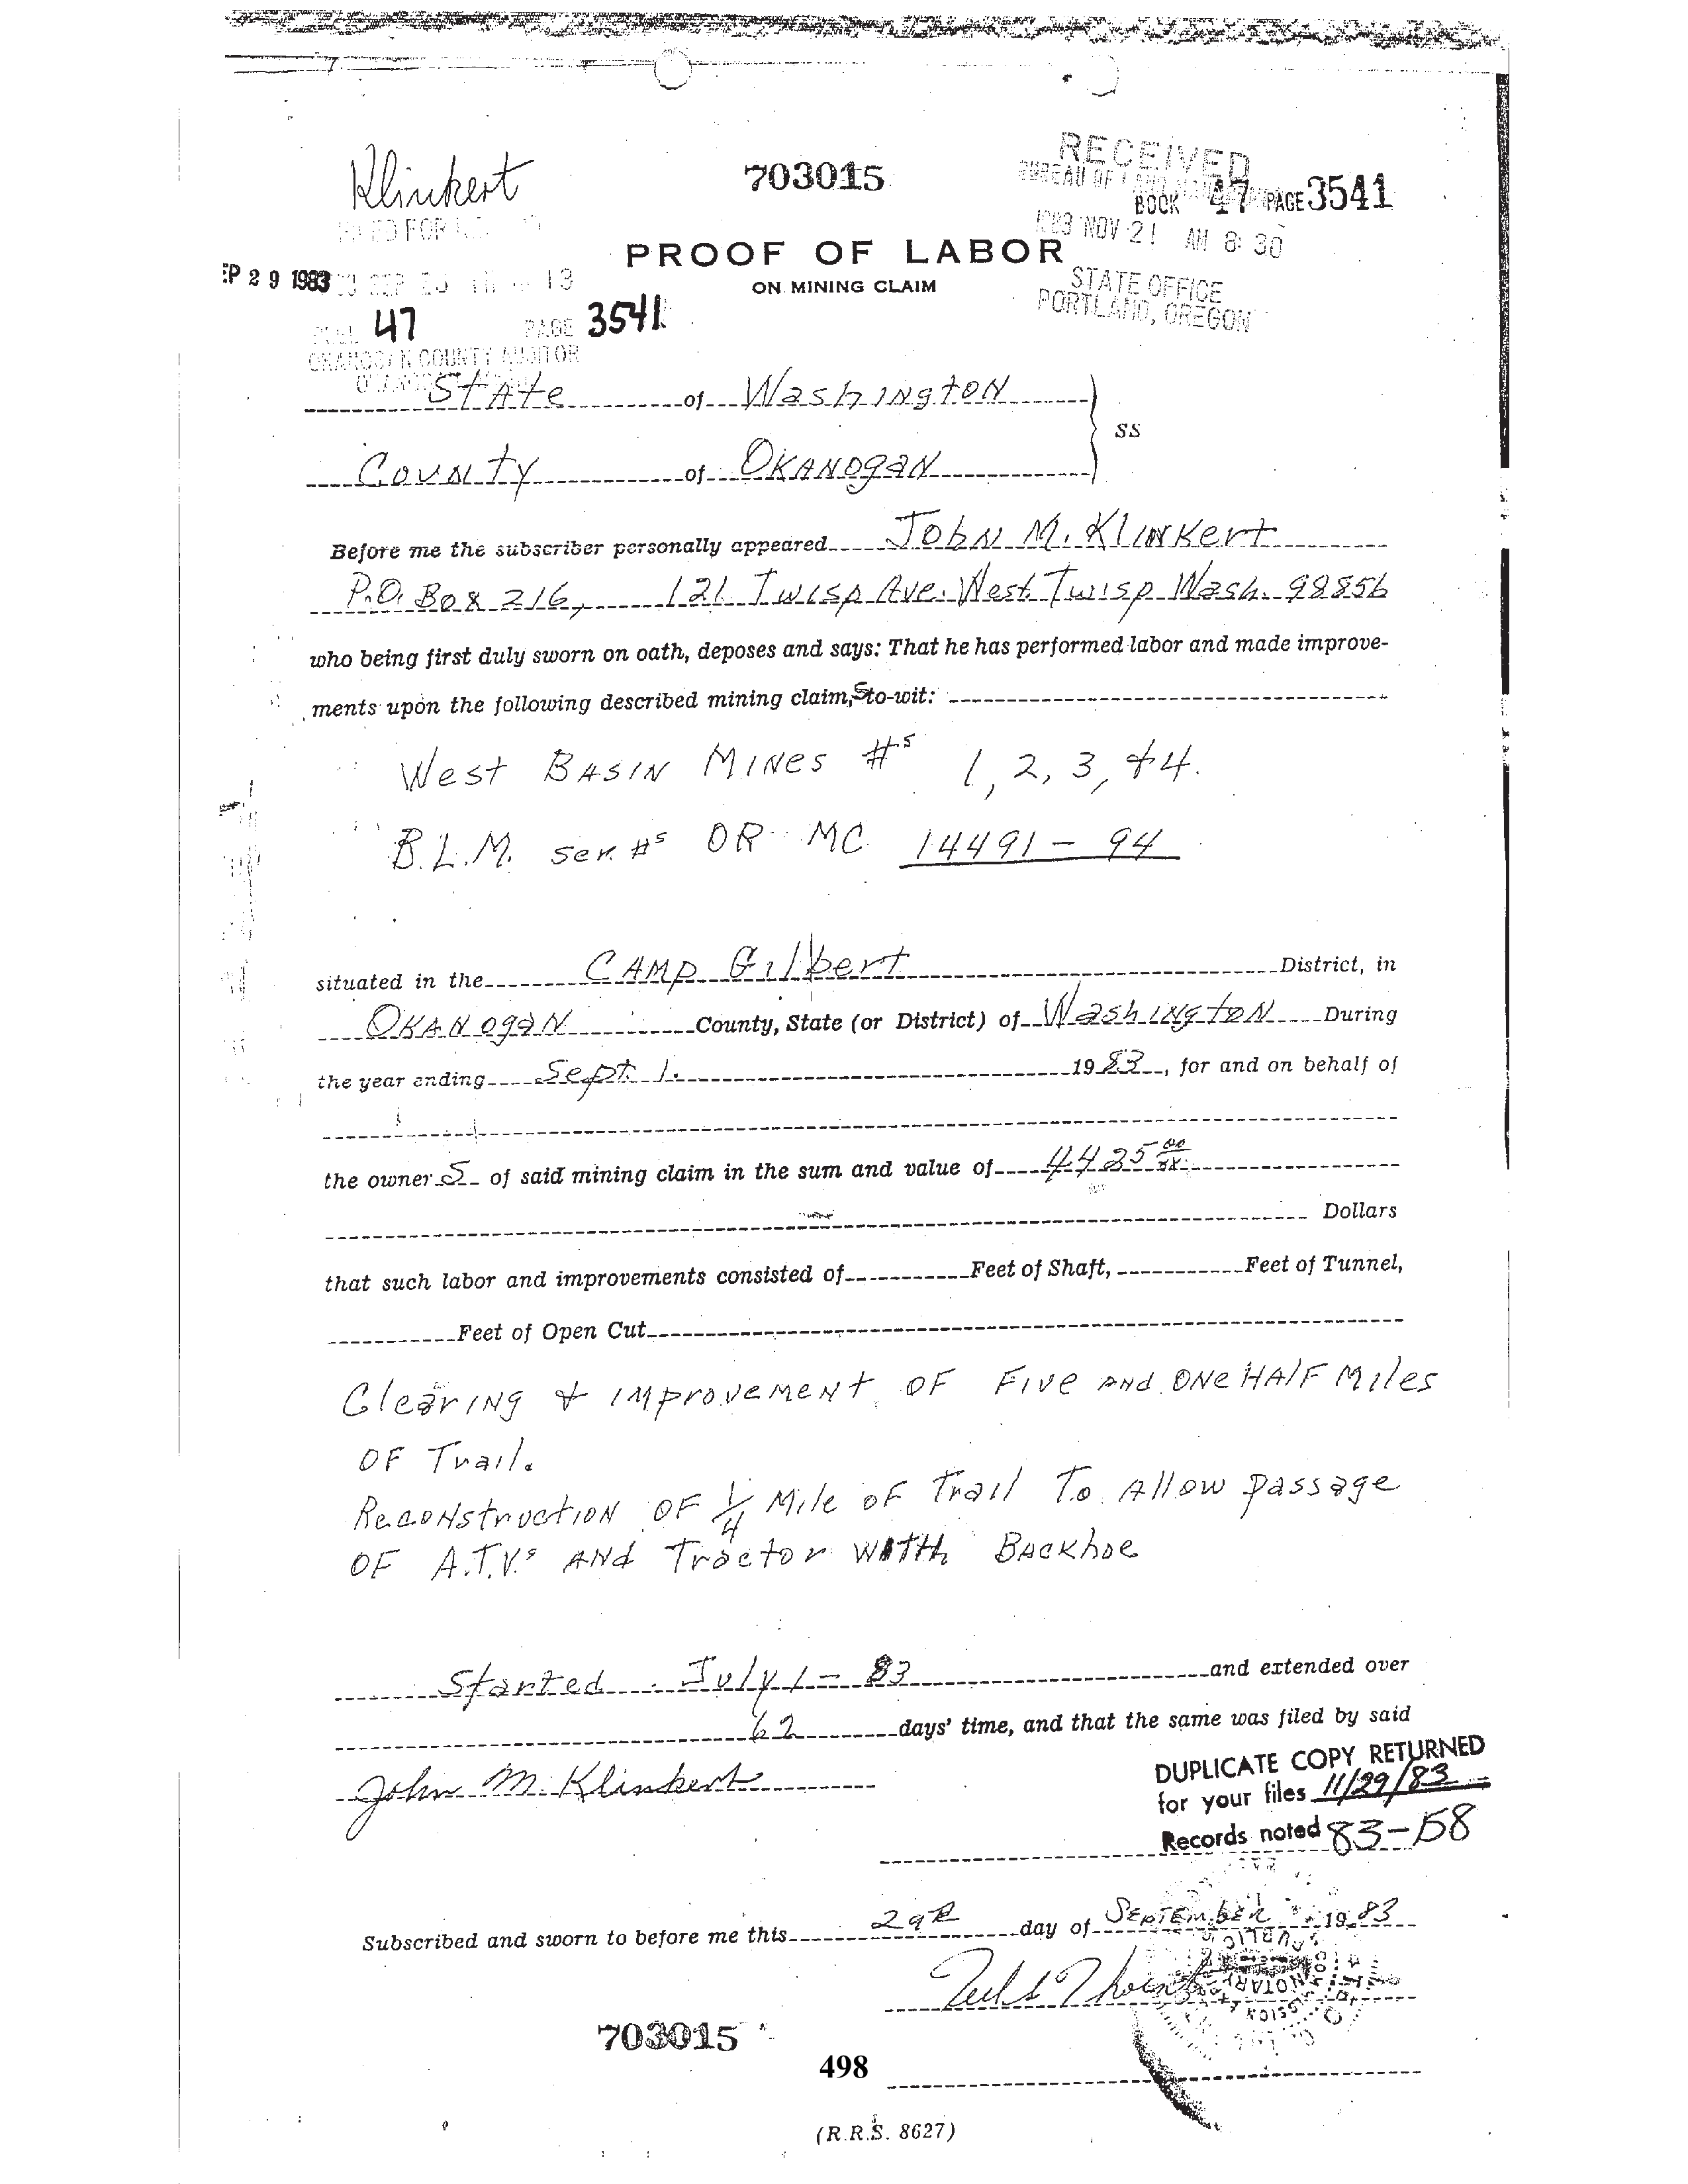 Klinkert
703015
RECEIVED
BUREAU OF LAND
BOOK 47 PAGE 3541
1983 NOV 21 AM 8:30
FILED FOR
PROOF OF LABOR
STATE OFFICE
PORTLAND, OREGON
EP 29 1983
ON MINING CLAIM
47 PAGE 3541
OKANOGAN COUNTY AUDITOR
State of Washington
SS
County of Okanogan
Before me the subscriber personally appeared John M. Klinkert
P.O. Box 216, 121 Twisp Ave. West Twisp Wash. 98856
who being first duly sworn on oath, deposes and says: That he has performed labor and made improve-
ments upon the following described mining claim,s to-wit:
West Basin Mines #s 1, 2, 3, & 4.
B.L.M. Ser. #s OR MC 14491 - 94
situated in the Camp Gilbert District, in
Okanogan County, State (or District) of Washington During
the year ending Sept. 1. 1983, for and on behalf of
the owner S of said mining claim in the sum and value of 4425 00/xx
Dollars
that such labor and improvements consisted of Feet of Shaft, Feet of Tunnel,
Feet of Open Cut
Clearing & improvement of Five and one Half Miles
of Trail.
Reconstruction of 1/4 Mile of Trail To Allow passage
of A.T.V.s and Tractor with Backhoe
Started July 1 - 83 and extended over
62 days' time, and that the same was filed by said
John M. Klinkert
DUPLICATE COPY RETURNED
for your files 11/29/83
Records noted 83-58
Subscribed and sworn to before me this 29th day of September 1983
NOTARY
PUBLIC
703015
498
(R.R.S. 8627)